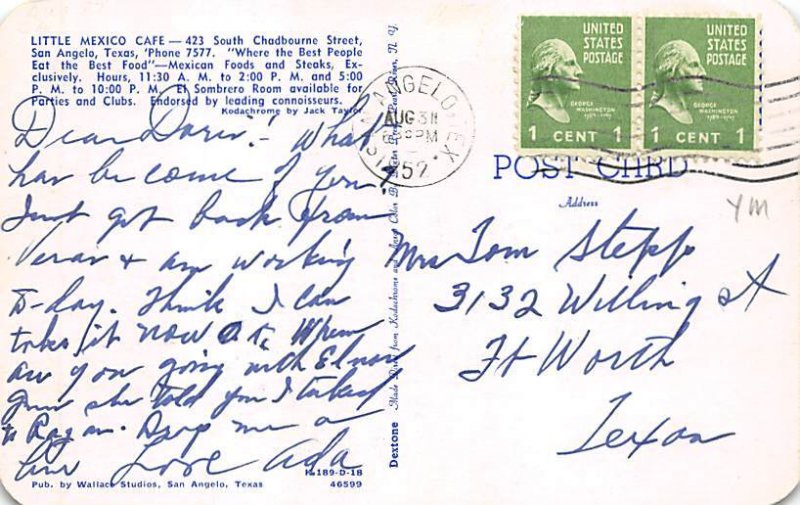 LITTLE MEXICO CAFE — 423 South Chadbourne Street,
San Angelo, Texas, 'Phone 7577. "Where the Best People
Eat the Best Food"—Mexican Foods and Steaks, Ex-
clusively. Hours, 11:30 A. M. to 2:00 P. M. and 5:00
P. M. to 10:00 P. M. El Sombrero Room available for
Parties and Clubs. Endorsed by leading connoisseurs.
Kodachrome by Jack Taylor
Dear Doris! What
has become of you?
Just got back from
& am working
to-day. Think I can
take it now O.K. When
are you going with
Guess she told you I talked
to Ragan. Drop me a
line Love Ada
K-189-D-1B
Pub. by Wallace Studios, San Angelo, Texas 46599
Dextone Made Direct from Kodachrome and
N. Y.
SAN ANGELO TEX.
AUG 31
PM
1952
UNITED STATES POSTAGE
GEORGE WASHINGTON
1789-1797
1 CENT 1
UNITED STATES POSTAGE
GEORGE WASHINGTON
1789-1797
1 CENT 1
POST CARD
Address
YM
Mrs Tom Stepp
3132 Willing St
Ft Worth
Texas